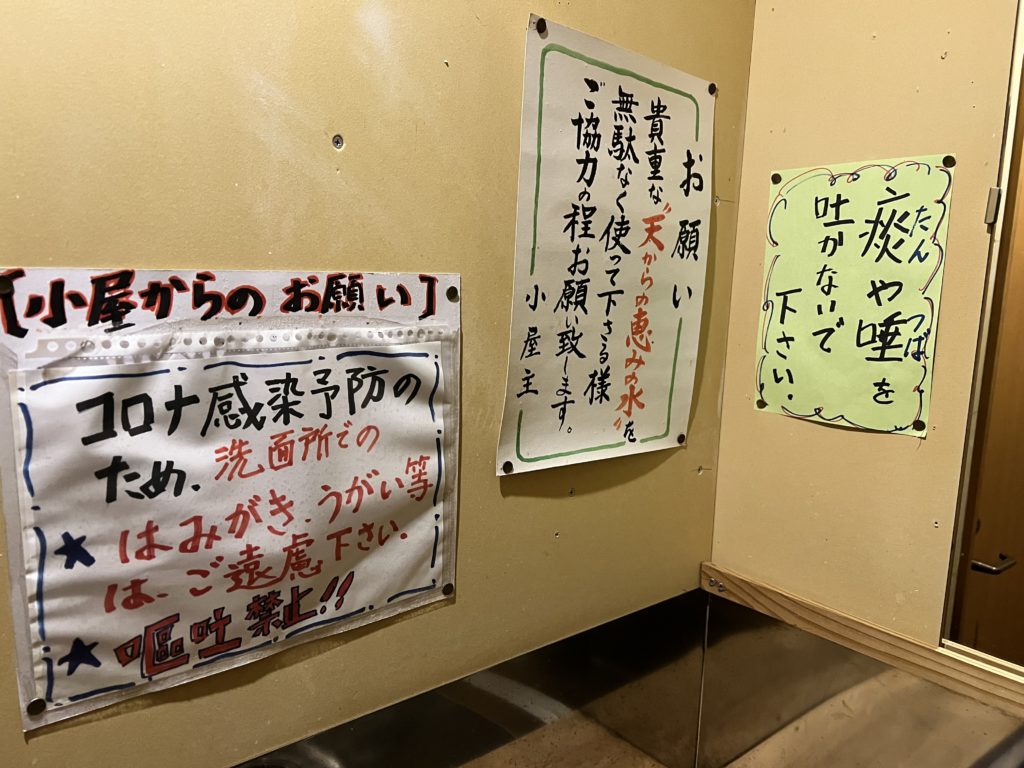 【小屋からのお願い】
コロナ感染予防の
ため、洗面所での
★はみがき、うがい等
は、ご遠慮下さい。
★嘔吐禁止!!
お願い
貴重な〝天からの恵みの水〟を
無駄なく使って下さる様
ご協力の程お願い致します。
小屋主
痰や唾を
たん つば
吐かないで
下さい.